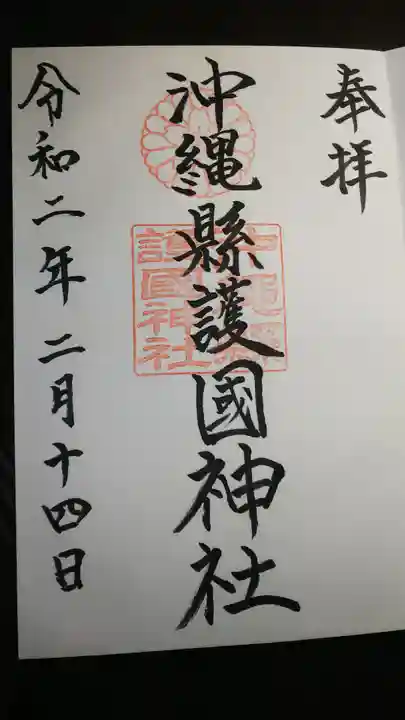 奉拝
沖縄縣護國神社
令和二年二月十四日
護國神社